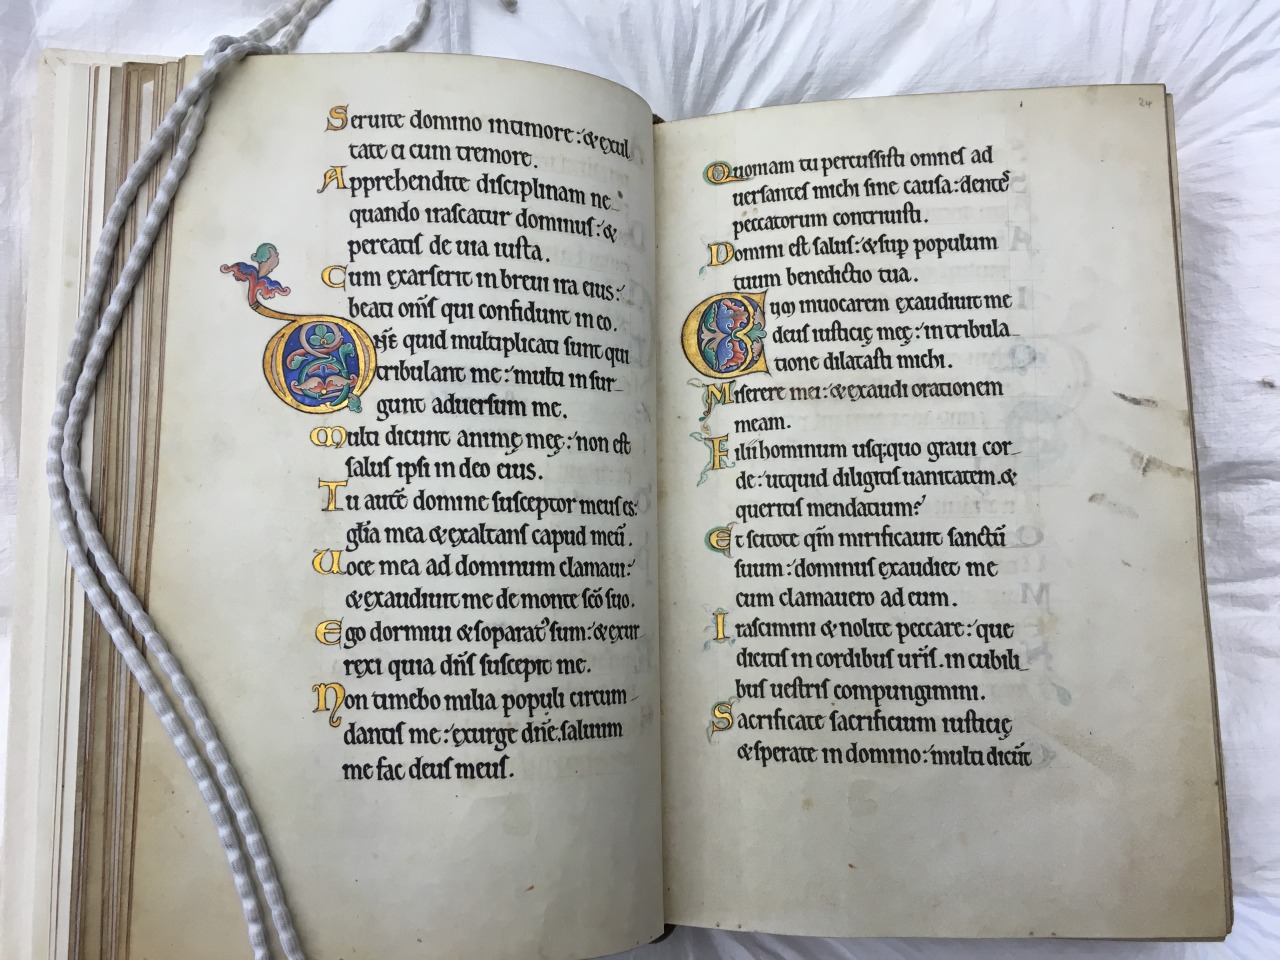 Seruite domino intimore: & exul
tate ei cum tremore.
Apprehendite disciplinam ne
quando irascatur dominus: &
pereatis de uia iusta.
Cum exarserit in breui ira eius:
beati om̄s qui confidunt in eo.
Dñe quid multiplicati sunt qui
tribulant me: multi insur
gunt aduersum me.
Multi dicunt animę meę: non est
salus ipsi in deo eius.
Tu autē domine susceptor meus es:
gl̄ia mea & exaltans capud meū.
Uoce mea ad dominum clamaui:
& exaudiuit me de monte sc̄o suo.
Ego dormiui & soporat᾽ sum: & exur
rexi quia dn̄s suscepit me.
Non timebo milia populi circum
dantis me: exurge dn̄e. saluum
me fac deus meus.
24
Quoniam tu percussisti omnes ad
uersantes michi sine causa: dentes
peccatorum contriuisti.
Domini est salus: & sup̱ populum
tuum benedictio tua.
Cum inuocarem exaudiuit me
deus iusticię meę: in tribula
tione dilatasti michi.
Miserere mei: & exaudi orationem
meam.
Filii hominum usq;quo graui cor
de: utquid diligitis uanitatem. &
queritis mendatium?
Et scitote qm̄ mirificauit sanctū
suum: dominus exaudiet me
cum clamauero ad eum.
Irascimini & nolite peccare: que
dicitis in cordibus ur̄is. in cubili
bus uestris compungimini.
Sacrificate sacrificium iusticię
& sperate in domino: multi dicūt